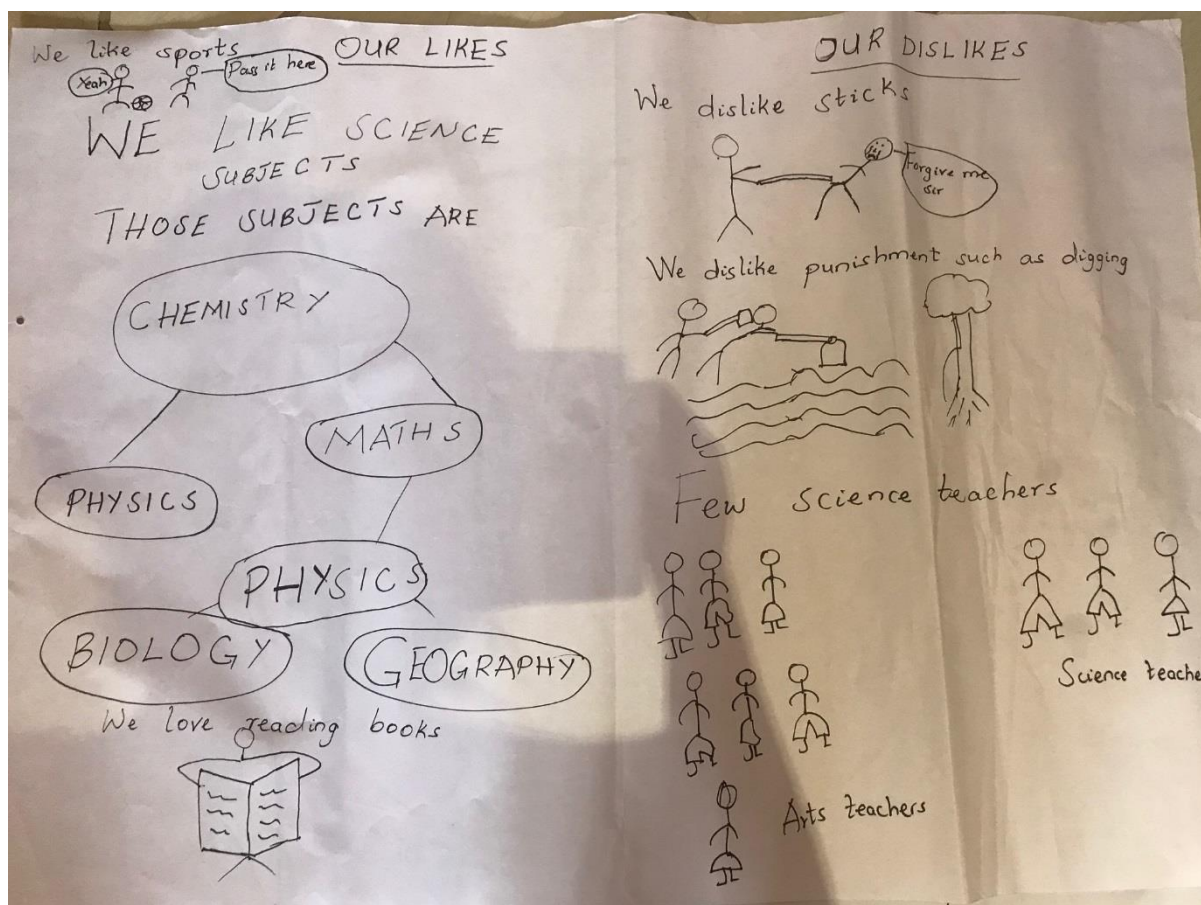 We like sports
OUR LIKES
Yeah
Pass it here
WE LIKE SCIENCE
SUBJECTS
THOSE SUBJECTS ARE
CHEMISTRY
MATHS
PHYSICS
PHYSICS
BIOLOGY
GEOGRAPHY
We love reading books
OUR DISLIKES
We dislike sticks
Forgive me
sir
We dislike punishment such as digging
Few science teachers
Science teache
Arts teachers